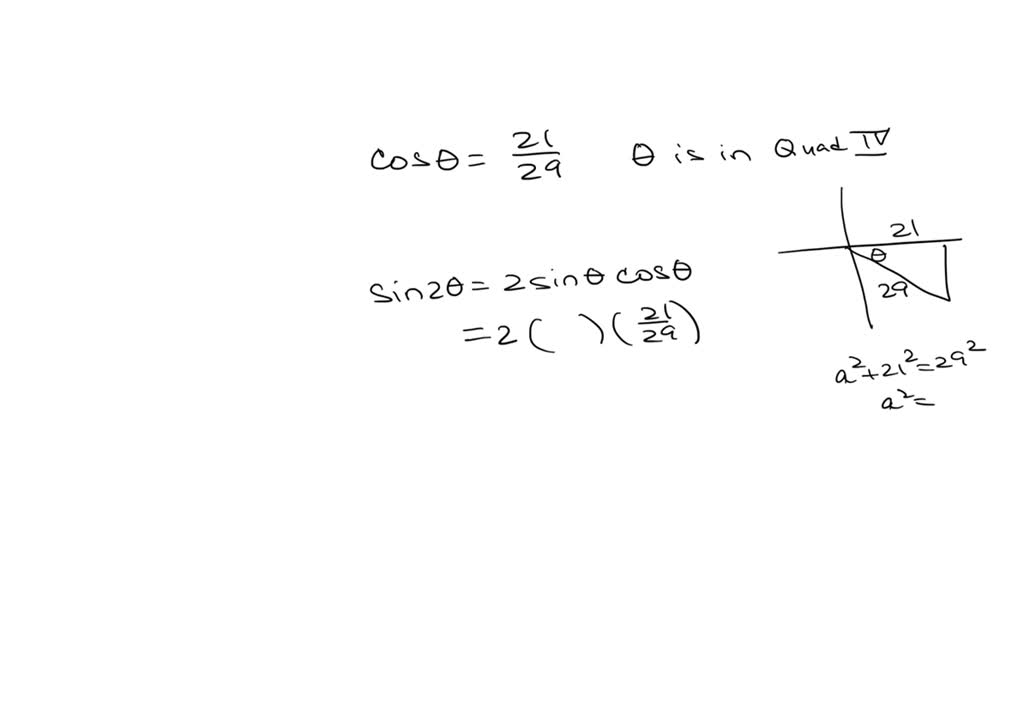 cosθ = 21/29 θ is in Quad IV
21
θ
29
sin2θ = 2 sinθ cosθ
= 2 ( ) (21/29)
a² + 21² = 29²
a² =